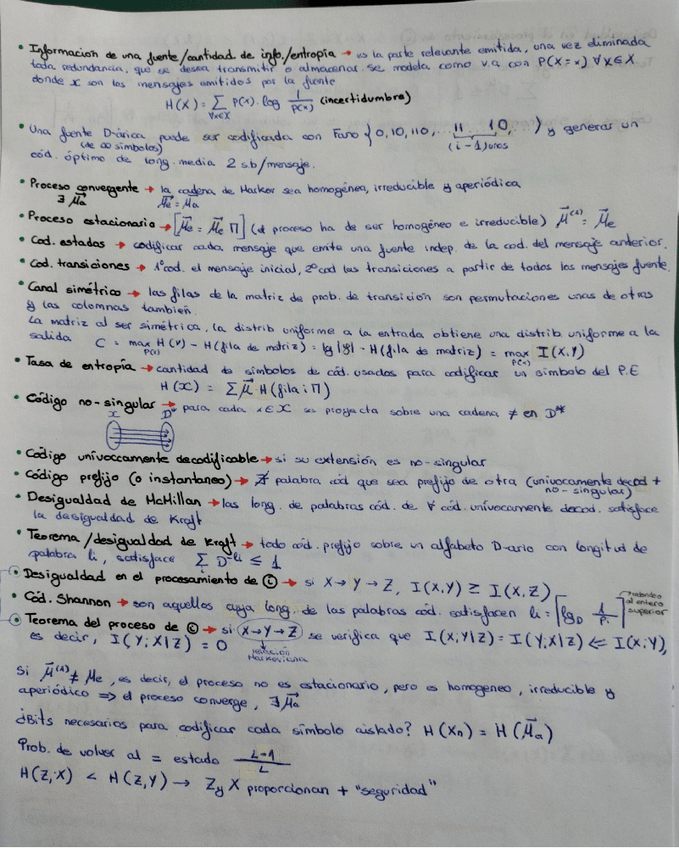 • Información de una fuente/cantidad de info./entropía → es la parte relevante emitida, una vez eliminada
toda redundancia, que se desea transmitir o almacenar. Se modela como v.a con P(X=x) ∀x∈X
donde x son los mensajes emitidos por la fuente
H(X) = Σ P(x)·log 1/P(x) (incertidumbre)
∀x∈X
• Una fuente D-árica puede ser codificada con Fano {0, 10, 110, ... 11...10, ...} y generar un
(de ∞ símbolos) (i-1) unos
cód. óptimo de long. media 2 s.b/mensaje.
• Proceso convergente → la cadena de Markov sea homogénea, irreducible y aperiódica
∃ μ⃗a μ⃗e = μ⃗a
• Proceso estacionario → [μ⃗e = μ⃗e Π] (el proceso ha de ser homogéneo e irreducible) μ⃗⁽¹⁾ = μ⃗e
• Cod. estados → codificar cada mensaje que emite una fuente indep. de la cod. del mensaje anterior.
• Cod. transiciones → 1º cod. el mensaje inicial, 2º cod las transiciones a partir de todos los mensajes fuente.
• Canal simétrico → las filas de la matriz de prob. de transición son permutaciones unas de otras
y las columnas también.
La matriz al ser simétrica, la distrib uniforme a la entrada obtiene una distrib uniforme a la
salida C = max H(Y) - H(fila de matriz) = lg |Y| - H(fila de matriz) = max I(X,Y)
P(x) P(x)
• Tasa de entropía → cantidad de símbolos de cód. usados para codificar un símbolo del P.E
H(X) = Σ μ⃗ H(fila i Π)
• Código no-singular → para cada x∈X se proyecta sobre una cadena ≠ en D*
X D*
• Código unívocamente decodificable → si su extensión es no-singular
• Código prefijo (o instantáneo) → ∄ palabra cód que sea prefijo de otra (unívocamente decod +
no-singular)
• Desigualdad de McMillan → las long. de palabras cód. de ∀ cód. unívocamente decod. satisface
la desigualdad de Kraft
• Teorema/desigualdad de Kraft → todo cód. prefijo sobre un alfabeto D-ario con longitud de
palabra li, satisface Σ D^-li ≤ 1
i
• Desigualdad en el procesamiento de ⓘ → si X→Y→Z, I(X,Y) ≥ I(X,Z)
• Cód. Shannon → son aquellos cuya long. de las palabras cód. satisfacen li = ⌈log_D 1/Pi⌉ redondeo al entero superior
• Teorema del proceso de ⓘ → si X→Y→Z se verifica que I(X;Y|Z) = I(Y;X|Z) ≤ I(X;Y),
es decir, I(Y;X|Z) = 0 relación Markoviana
Si μ⃗⁽¹⁾ ≠ μe, es decir, el proceso no es estacionario, pero es homogeneo, irreducible y
aperiódico ⇒ el proceso converge, ∃ μ⃗a
¿Bits necesarios para codificar cada símbolo aislado? H(Xn) = H(μ⃗a)
Prob. de volver al = estado L-1/L
H(Z,X) < H(Z,Y) → Z y X proporcionan + "seguridad"